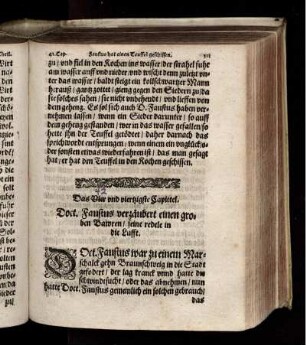 zu / und fiel in den Kochen ins wasser / der strahel fuhr
am wasser auff und nieder / und wischt denn zulezt un-
ter das wasser / baldt steigt ein kollschwartzer Mann
herauß / gantz zottet / gieng gegen den Siedern zu / da
sie solches sahen / sie nicht unbehendt / und lieffen von
dem geheng. Es sol sich auch D. Faustus haben ver-
nehmen lassen / wenn ein Sieder darunter / so auff
dem geheng gestanden / wer in das wasser gefallen / so
hette ihn der Teuffel getödtet / daher darnach das
sprichwordt entsprungen: wenn einem ein unglücks-
der sonsten etwas wiederfahren ist / das man gesagt
hat / er hat den Teuffel in den Kochen geschissen.
Das Vier und viertzigste Capittel.
Doct. Faustus verzäubert einen gro-
ben Bawren / seine redete in
die Lufft.
DOct. Faustus war zu einem Mar-
schalck gehn Braunschweig in die Stadt
gefodert / der lag kranck unnd hatte die
schwindsucht / oder das abnehmen / nun
hatte Doct. Faustus gemeinlich ein solchen gebrauch
das